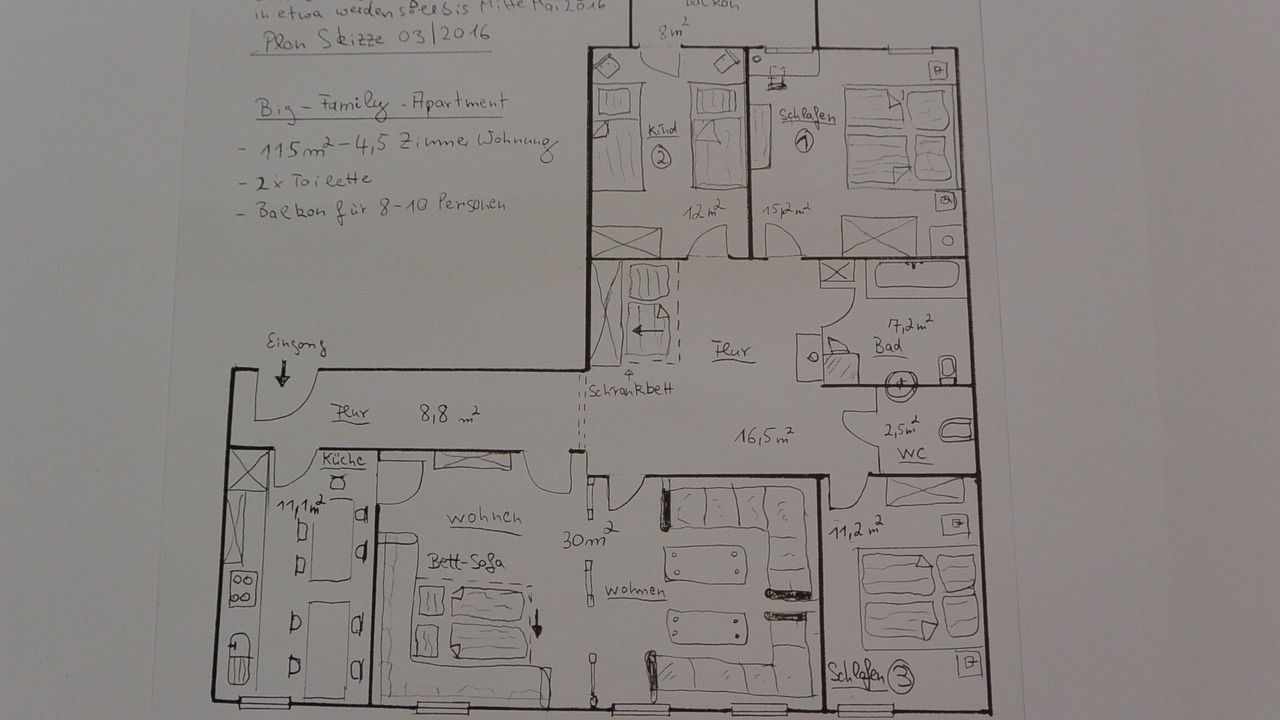 in etwa werden bis Mitte Mai 2016
Plan Skizze 03/2016
Big-Family-Apartment
- 115m²-4,5 Zimmer Wohnung
- 2x Toilette
- Balkon für 8-10 Personen
Balkon
8m²
Kind
2
12m²
Schlafen
1
15,2m²
Schrankbett
Flur
16,5m²
7,2m²
Bad
2,5m²
WC
Eingang
Flur 8,8 m²
Küche
11,1m²
wohnen
30m²
Bett-Sofa
wohnen
11,2m²
Schlafen 3